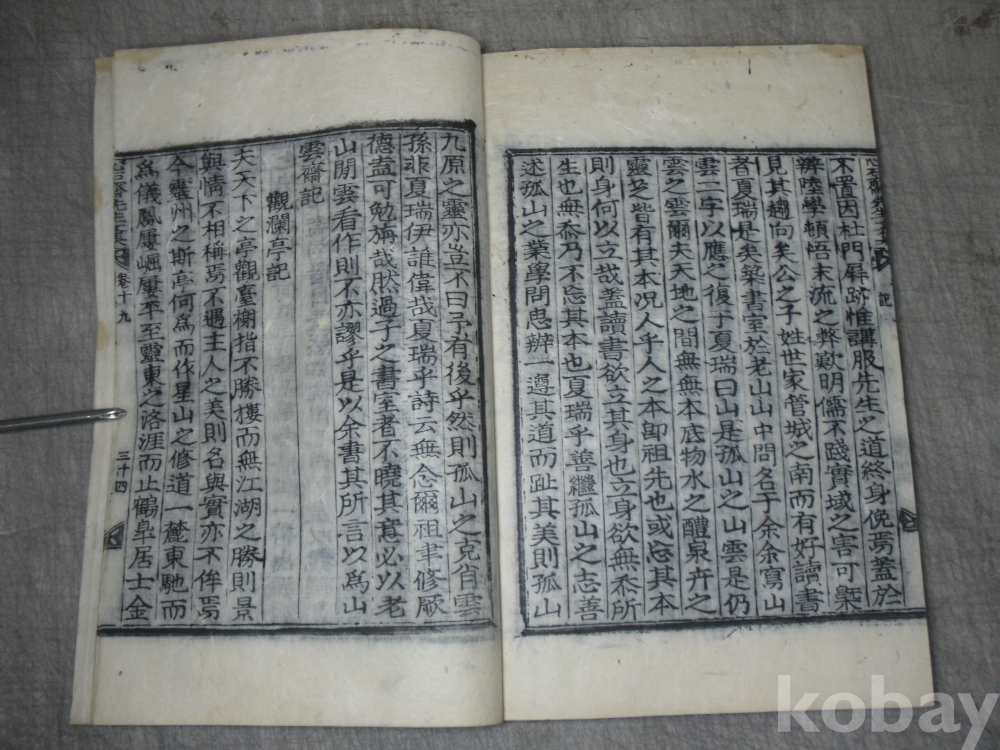 不置因杜門屛跡惟講服先生之道終身俛焉蓋於
辨陸學頓悟末流之弊歎明儒不踐實域之害可槩
見其趨向矣公之子姓世家管城之南而有好讀書
者夏瑞是矣築書室於老山山中問名于余余寫山
雲二字以應之復于夏瑞曰山是孤山之山雲是仍
雲之雲爾夫天地之間無無本底物水之醴泉卉之
靈芝皆有其本况人乎人之本卽祖先也或忘其本
則身何以立哉蓋讀書欲立其身也立身欲無忝所
生也無忝乃不忘其本也夏瑞乎善繼孤山之志善
述孤山之業學問思辨一遵其道而趾其美則孤山
記
九原之靈亦豈不曰予有後乎然則孤山之克肖雲
孫非夏瑞伊誰偉哉夏瑞乎詩云無念爾祖聿修厥
德盍可勉旃哉然過子之書室者不曉其意必以老
山閒雲看作則不亦謬乎是以余書其所言以爲山
雲齋記
觀瀾亭記
夫天下之亭觀臺榭指不勝樓而無江湖之勝則景
與情不相稱焉不遇主人之美則名與實亦不侔焉
今靈州之斯亭何爲而作星山之修道一麓東馳而
爲儀鳳屢崛屢平至靈東之洛涯而止鶴皐居士金
卷十九
三十四
kobay